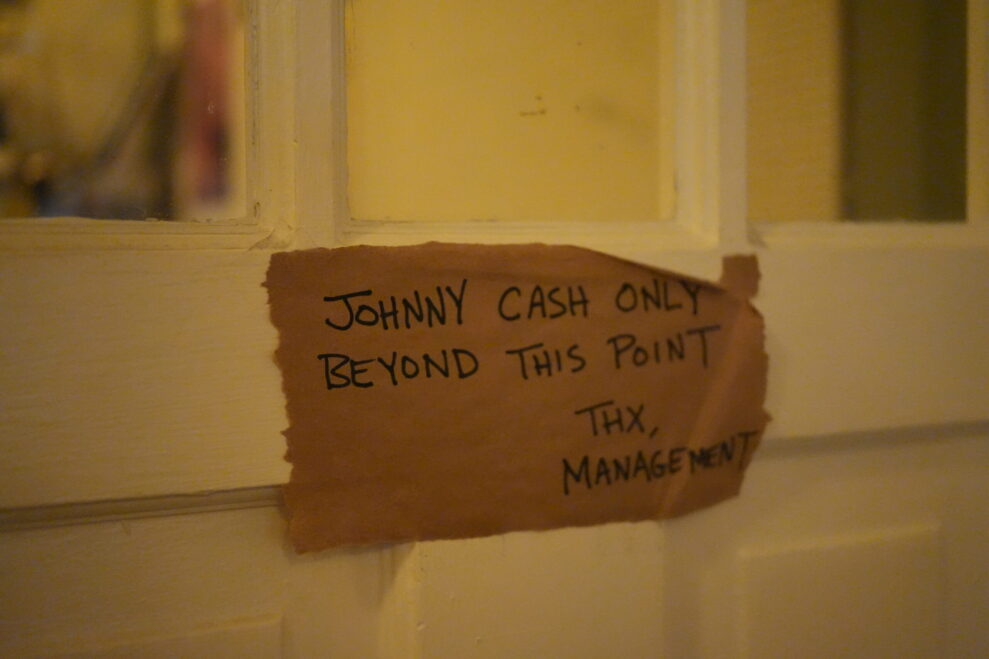 JOHNNY CASH ONLY
BEYOND THIS POINT
THX,
MANAGEMENT